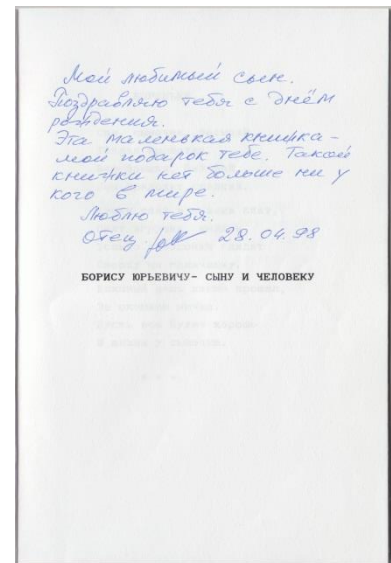 Мой любимый сын.
Поздравляю тебя с днём
рождения.
Эта маленькая книжка -
мой подарок тебе. Такой
книжки нет больше ни у
кого в мире.
Люблю тебя.
Отец 28.04.98
БОРИСУ ЮРЬЕВИЧУ- СЫНУ И ЧЕЛОВЕКУ